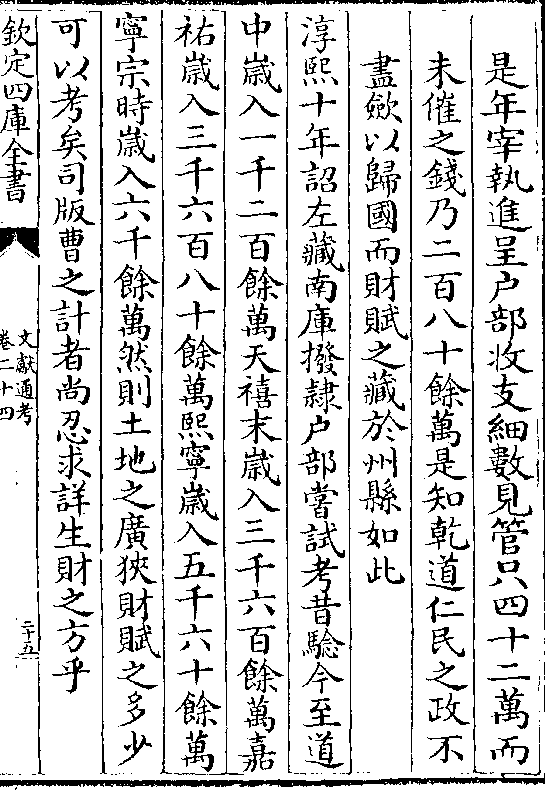 是年宰執進呈户部收支細數見管只四十二萬而
未催之錢乃二百八十餘萬是知乾道仁民之政不
盡斂以歸國而財賦之藏於州縣如此
淳熙十年詔左藏南庫撥隸户部嘗試考昔驗今至道
中嵗入一千二百餘萬天禧末嵗入三千六百餘萬嘉
祐嵗入三千六百八十餘萬熙寧嵗入五千六十餘萬
寧宗時嵗入六千餘萬然則土地之廣狹財賦之多少
可以考矣司版曹之計者尚忍求詳生財之方乎
欽定四庫全書
文獻通考
卷二十四
二十五